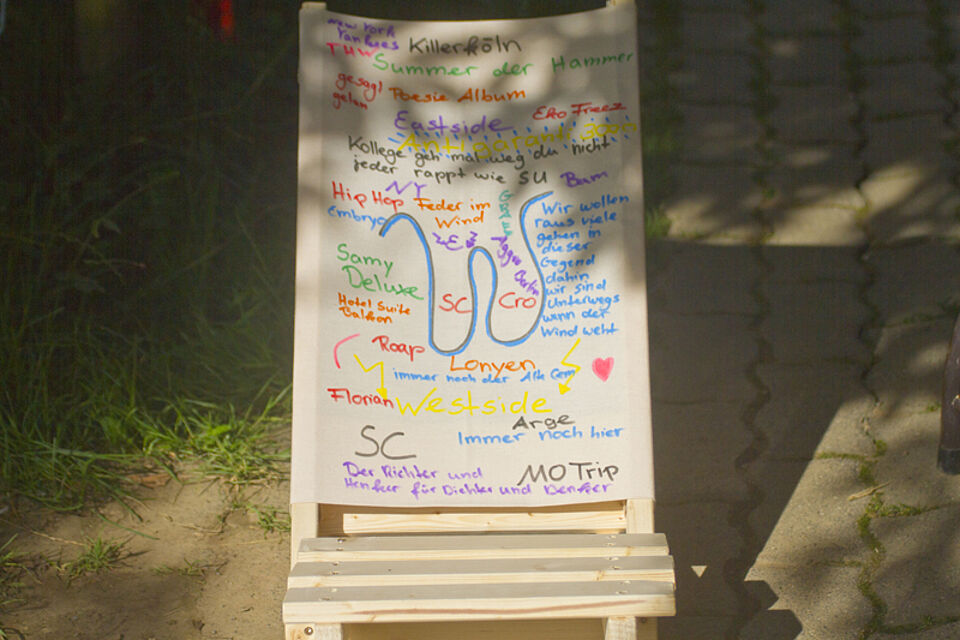 New York
Yankees
Killerköln
THW
Summer der Hammer
gesagt
getan
Poesie Album
Eko Freez
Eastside
Antigaranti 30cm
Kollege geh mal weg du nicht
jeder rappt wie SU
Bam
NY
Hip Hop
Feder im
Wind
embryo
Wir wollen
raus viele
gehen in
dieser
Gegend
dahin
wir sind
Unterwegs
wenn der
Wind weht
Samy
Deluxe
SC
Cro
Hotel Suite
Balkon
Roap
Lonyen
immer noch der Alte Cem
Florian
Westside
Arge
SC
Immer noch hier
Der Richter und
Henker für Dichter und Denker
MO Trip